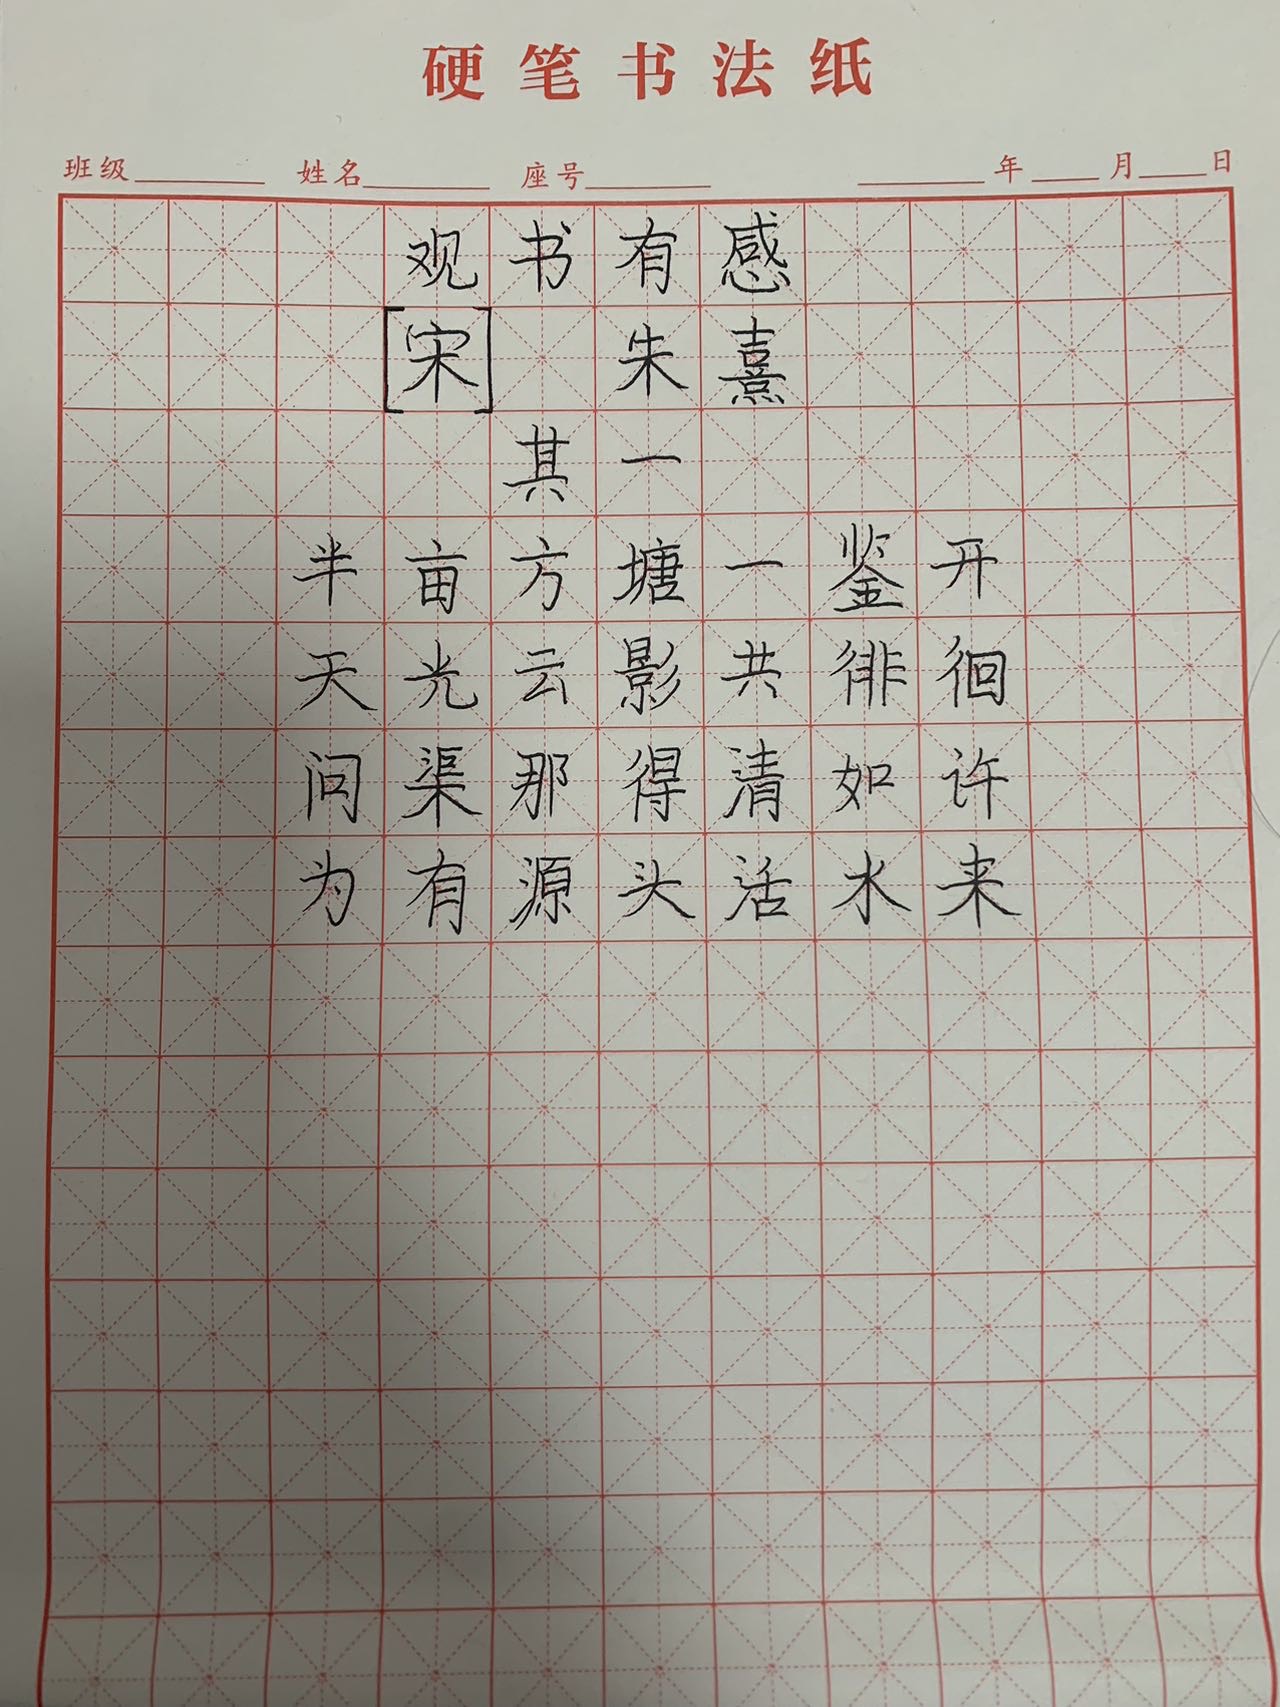 硬笔书法纸
班级 姓名 座号 年 月 日
观书有感
[宋] 朱熹
其一
半亩方塘一鉴开
天光云影共徘徊
问渠那得清如许
为有源头活水来